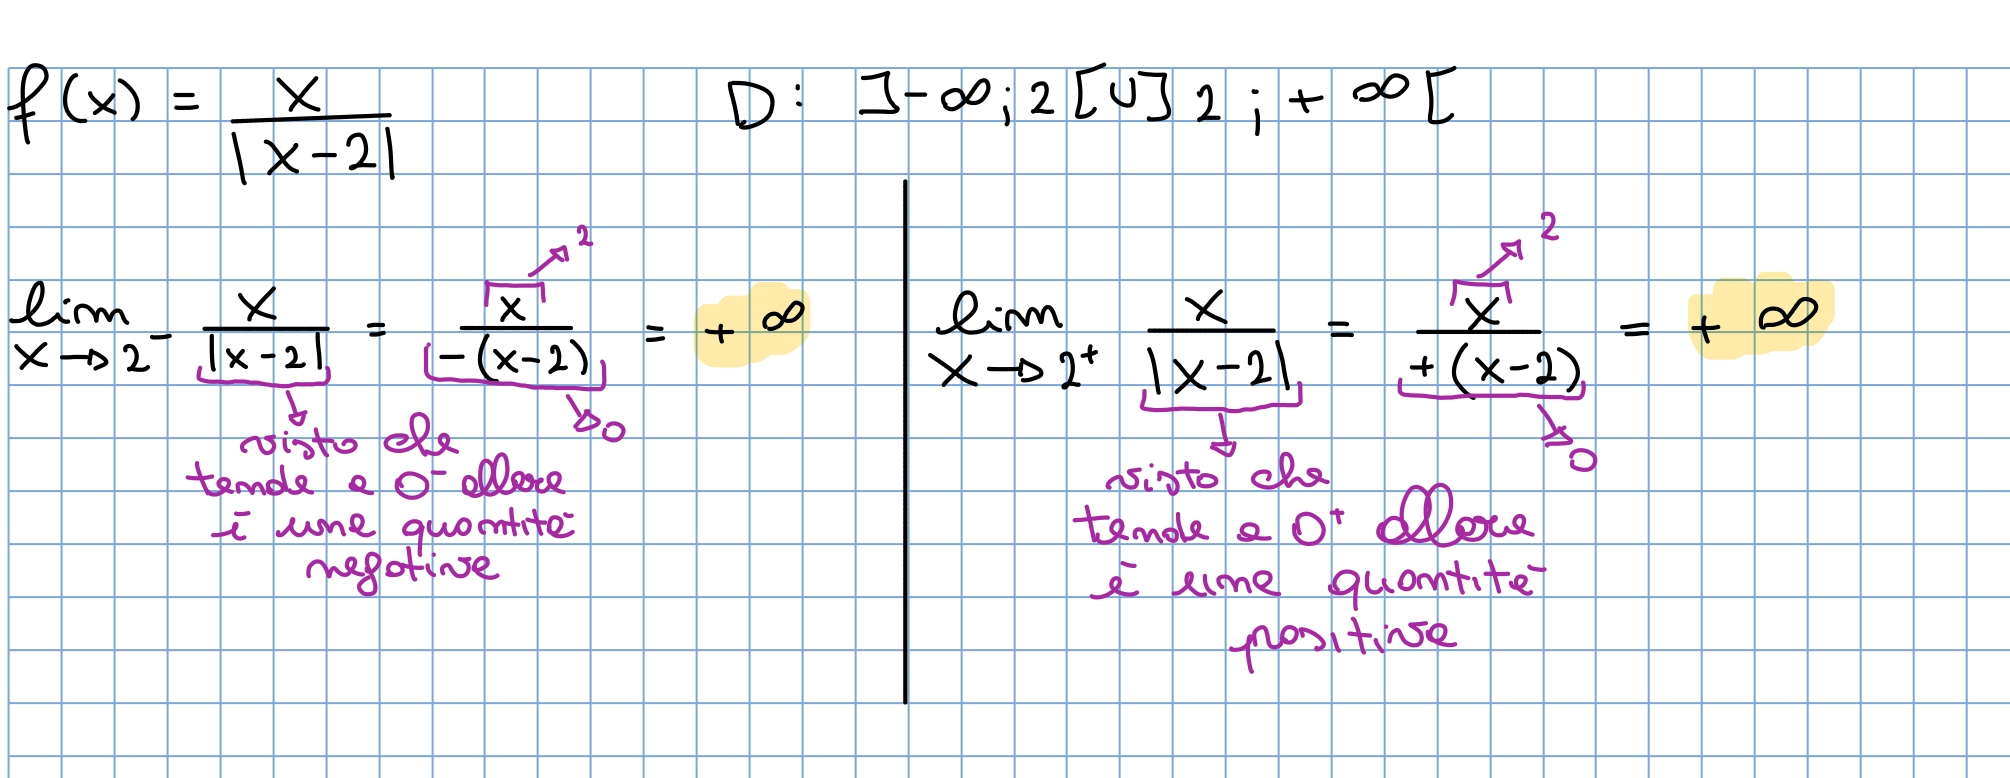 f(x) = x / |x-2| D: ]-∞; 2[U]2; +∞[
lim x→2⁻ x / |x-2| = x / -(x-2) = +∞
2
0
visto che
tende a 0⁻ allora
è una quantità
negativa
lim x→2⁺ x / |x-2| = x / +(x-2) = +∞
2
0
visto che
tende a 0⁺ allora
è una quantità
positiva